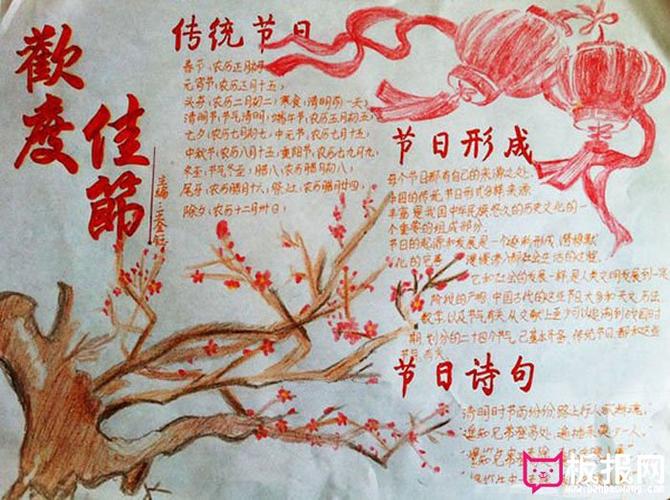 歡度
佳節
主编:王
传统节日
春节:农历正月初
元宵节:农历正月十五;
头牙:农历二月初二;寒食:清明前一天;
清明节:节气清明;端午节:农历五月初五;
七夕:农历七月初七;中元节:农历七月十五;
中秋节:农历八月十五;重阳节:农历九月九
冬至:节气冬至;腊八:农历腊月初八;
尾牙:农历腊月十六,祭灶:农历腊月廿四,
除夕:农历十二月卅日;
节日形成
每个节日都有自己的来源之处.
中国的传统节日形式多样来源
丰富是我国中华民族悠久的历史文化的一
个重要的组成部分.
节日的起源和发展是一个逐渐形成,潜移默
化的完善 慢慢渗入到社会生活的过程.
它和社会的发展一样,是人类文明发展到一定
阶段的产物,中国古代的这些节日大多和天文、历法
数学,以及节气有关,从文献上至少可以追溯到战国时
期,划分的二十四个节气,已基本齐备,传统节日都和这些
节气有关
节日诗句
"清明时节雨纷纷,路上行人欲断魂,"
"遥知兄弟登高处,遍插茱萸少一人,
板报网
www.banbaowang.com